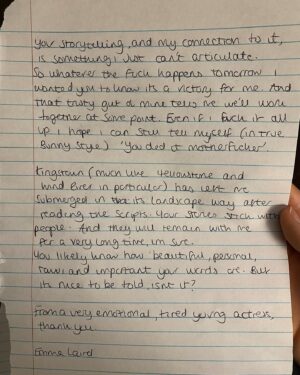 Your storytelling, and my connection to it,
is something i just can't articulate.
So whatever the fuck happens tomorrow i
wanted you to know its a victory for me. And
that trusty gut of mine tells me we'll work
together at some point. Even if i fuck it all
up i hope i can still tell myself (in true
Bunny style) 'You did it motherfucker'.
Kingstown (much like Yellowstone and
Wind River in particular) has left me
submerged in its landscape way after
reading the scripts. Your stories stick with
people. And they will remain with me
for a very long time, im sure.
You likely know how beautiful, personal,
raw and important your words are. But
its nice to be told, isnt it?
From a very emotional, tired young actress,
thank you.
Emma Laird